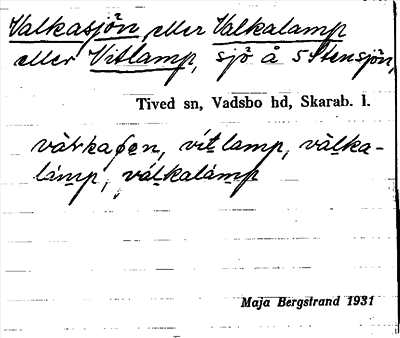 Valkasjön eller Valkalamp
eller Vitlamp, sjö å 5 Stensjön,
Tived sn, Vadsbo hd, Skarab. l.
vàrkaʃen, vítlamp, vàlka-
lámp, válkalámp
Maja Bergstrand 1931